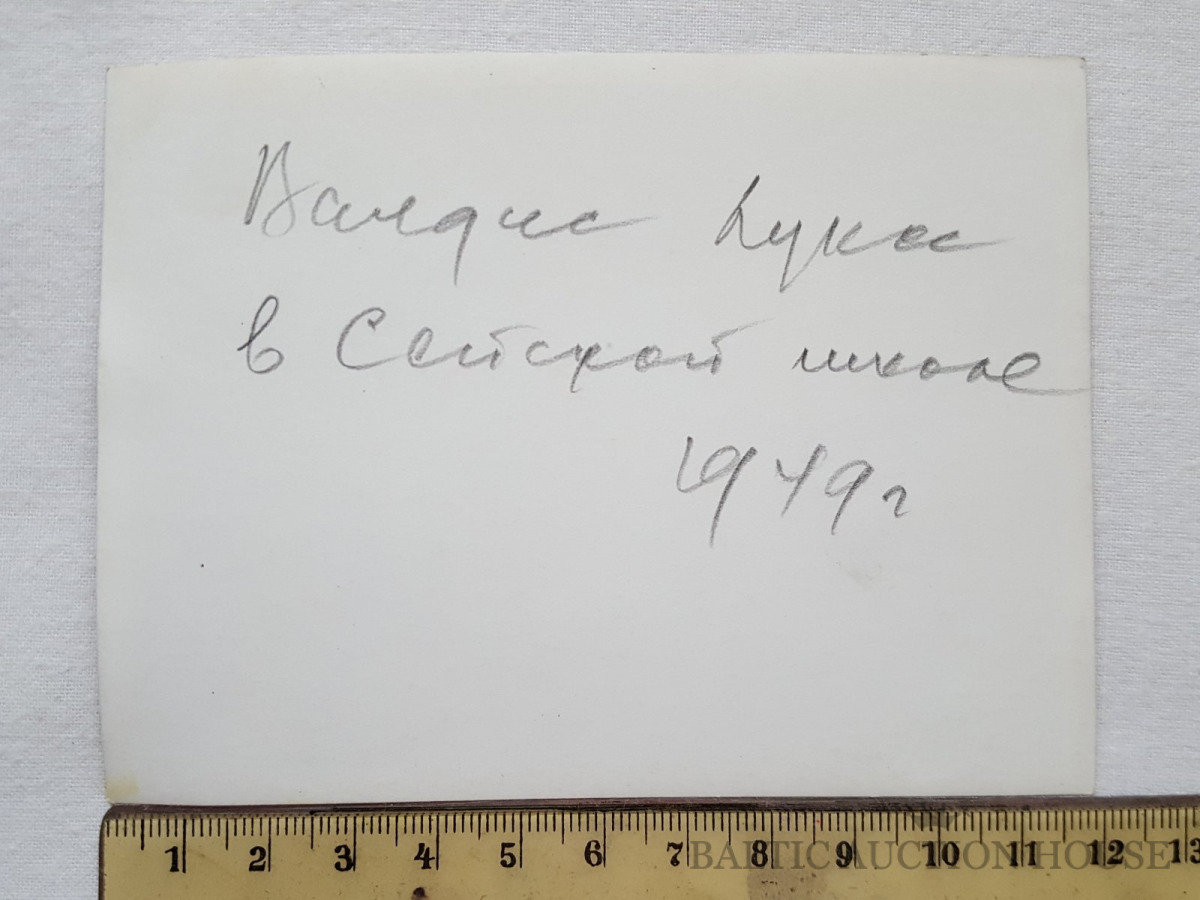 Валдис Лукс
в Сейской школе
1949 г
1 2 3 4 5 6 7 8 9 10 11 12 13
BALTIC AUCTION HOUSE